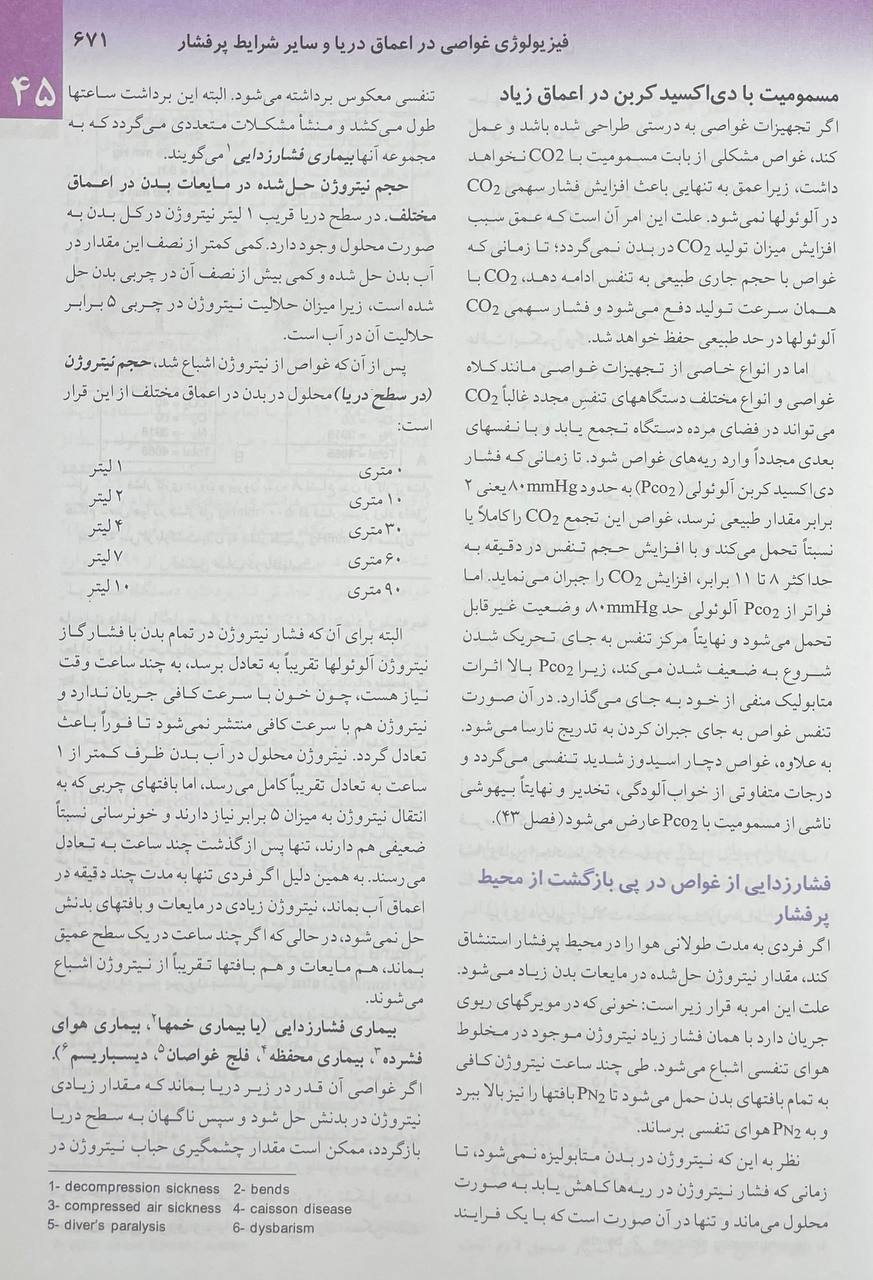 فیزیولوژی غواصی در اعماق دریا و سایر شرایط پرفشار ۶۷۱
۴۵
مسمومیت با دی‌اکسید کربن در اعماق زیاد
اگر تجهیزات غواصی به درستی طراحی شده باشد و عمل
کند، غواص مشکلی از بابت مسمومیت با CO2 نخواهد
داشت، زیرا عمق به تنهایی باعث افزایش فشار سهمی CO2
در آلوئولها نمی‌شود. علت این امر آن است که عمق سبب
افزایش میزان تولید CO2 در بدن نمی‌گردد؛ تا زمانی که
غواص با حجم جاری طبیعی به تنفس ادامه دهد، CO2 با
همان سرعت تولید دفع می‌شود و فشار سهمی CO2
آلوئولها در حد طبیعی حفظ خواهد شد.
اما در انواع خاصی از تجهیزات غواصی مانند کلاه
غواصی و انواع مختلف دستگاههای تنفسِ مجدد غالباً CO2
می‌تواند در فضای مرده دستگاه تجمع یابد و با نفسهای
بعدی مجدداً وارد ریه‌های غواص شود. تا زمانی که فشار
دی‌اکسید کربن آلوئولی (Pco2) به حدود ۸۰mmHg یعنی ۲
برابر مقدار طبیعی نرسد، غواص این تجمع CO2 را کاملاً یا
نسبتاً تحمل می‌کند و با افزایش حجم تنفس در دقیقه به
حداکثر ۸ تا ۱۱ برابر، افزایش CO2 را جبران می‌نماید. اما
فراتر از Pco2 آلوئولی حد ۸۰mmHg، وضعیت غیرقابل
تحمل می‌شود و نهایتاً مرکز تنفس به جای تحریک شدن
شروع به ضعیف شدن می‌کند، زیرا Pco2 بالا اثرات
متابولیک منفی از خود به جای می‌گذارد. در آن صورت
تنفس غواص به جای جبران کردن به تدریج نارسا می‌شود.
به علاوه، غواص دچار اسیدوز شدید تنفسی می‌گردد و
درجات متفاوتی از خواب‌آلودگی، تخدیر و نهایتاً بیهوشی
ناشی از مسمومیت با Pco2 عارض می‌شود (فصل ۴۳).
فشارزدایی از غواص در پی بازگشت از محیط
پرفشار
اگر فردی به مدت طولانی هوا را در محیط پرفشار استنشاق
کند، مقدار نیتروژن حل‌شده در مایعات بدن زیاد می‌شود.
علت این امر به قرار زیر است: خونی که در مویرگهای ریوی
جریان دارد با همان فشار زیاد نیتروژن موجود در مخلوط
هوای تنفسی اشباع می‌شود. طی چند ساعت نیتروژن کافی
به تمام بافتهای بدن حمل می‌شود تا PN2 بافتها را نیز بالا ببرد
و به PN2 هوای تنفسی برساند.
نظر به این که نیتروژن در بدن متابولیزه نمی‌شود، تا
زمانی که فشار نیتروژن در ریه‌ها کاهش یابد به صورت
محلول می‌ماند و تنها در آن صورت است که با یک فرایند
تنفسی معکوس برداشته می‌شود. البته این برداشت ساعتها
طول می‌کشد و منشأ مشکلات متعددی می‌گردد که به
مجموعه آنها بیماری فشارزدایی۱ می‌گویند.
حجم نیتروژن حل‌شده در مایعات بدن در اعماق
مختلف. در سطح دریا قریب ۱ لیتر نیتروژن در کل بدن به
صورت محلول وجود دارد. کمی کمتر از نصف این مقدار در
آب بدن حل شده و کمی بیش از نصف آن در چربی بدن حل
شده است، زیرا میزان حلالیت نیتروژن در چربی ۵ برابر
حلالیت آن در آب است.
پس از آن که غواص از نیتروژن اشباع شد، حجم نیتروژن
(در سطح دریا) محلول در بدن در اعماق مختلف از این قرار
است:
۰ متری ۱ لیتر
۱۰ متری ۲ لیتر
۳۰ متری ۴ لیتر
۶۰ متری ۷ لیتر
۹۰ متری ۱۰ لیتر
البته برای آن که فشار نیتروژن در تمام بدن با فشار گاز
نیتروژن آلوئولها تقریباً به تعادل برسد، به چند ساعت وقت
نیاز هست، چون خون با سرعت کافی جریان ندارد و
نیتروژن هم با سرعت کافی منتشر نمی‌شود تا فوراً باعث
تعادل گردد. نیتروژن محلول در آب بدن ظرف کمتر از ۱
ساعت به تعادل تقریباً کامل می‌رسد، اما بافتهای چربی که به
انتقال نیتروژن به میزان ۵ برابر نیاز دارند و خونرسانی نسبتاً
ضعیفی هم دارند، تنها پس از گذشت چند ساعت به تعادل
می‌رسند. به همین دلیل اگر فردی تنها به مدت چند دقیقه در
اعماق آب بماند، نیتروژن زیادی در مایعات و بافتهای بدنش
حل نمی‌شود، در حالی که اگر چند ساعت در یک سطح عمیق
بماند، هم مایعات و هم بافتها تقریباً از نیتروژن اشباع
می‌شوند.
بیماری فشارزدایی (یا بیماری خمها۲، بیماری هوای
فشرده۳، بیماری محفظه۴، فلج غواصان۵، دیسباریسم۶).
اگر غواصی آن قدر در زیر دریا بماند که مقدار زیادی
نیتروژن در بدنش حل شود و سپس ناگهان به سطح دریا
بازگردد، ممکن است مقدار چشمگیری حباب نیتروژن در
1- decompression sickness 2- bends
3- compressed air sickness 4- caisson disease
5- diver's paralysis 6- dysbarism